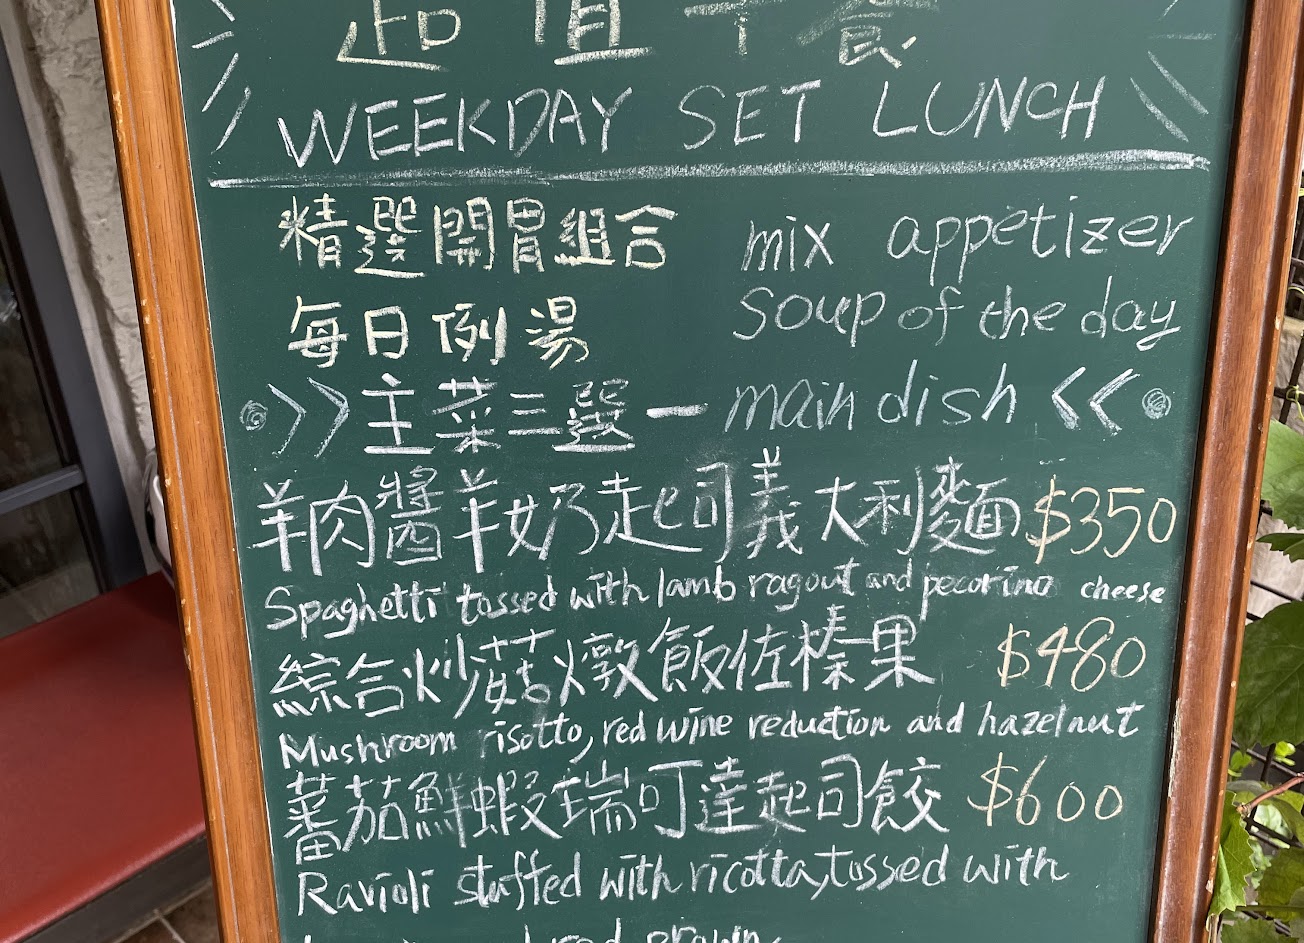 超值午餐
WEEKDAY SET LUNCH
精選開胃組合 mix appetizer
每日例湯 soup of the day
◎>>主菜三選一 main dish <<◎
羊肉醬羊奶起司義大利麵 $350
Spaghetti tossed with lamb ragout and pecorino cheese
綜合炒菇燉飯佐榛果 $480
Mushroom risotto, red wine reduction and hazelnut
蕃茄鮮蝦瑞可達起司餃 $600
Ravioli stuffed with ricotta, tossed with